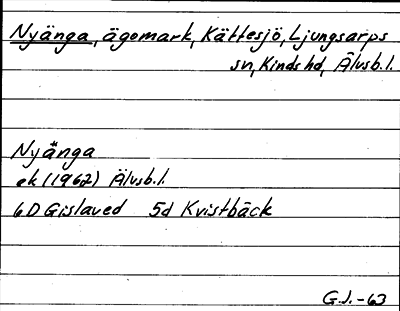 Nyänga, ägomark, Kättesjö, Ljungsarps
sn, Kinds hd, Älvsb.l.
Nyänga
ek (1962) Älvsb.l.
6D Gislaved 5d Kvistbäck
G.J.-63